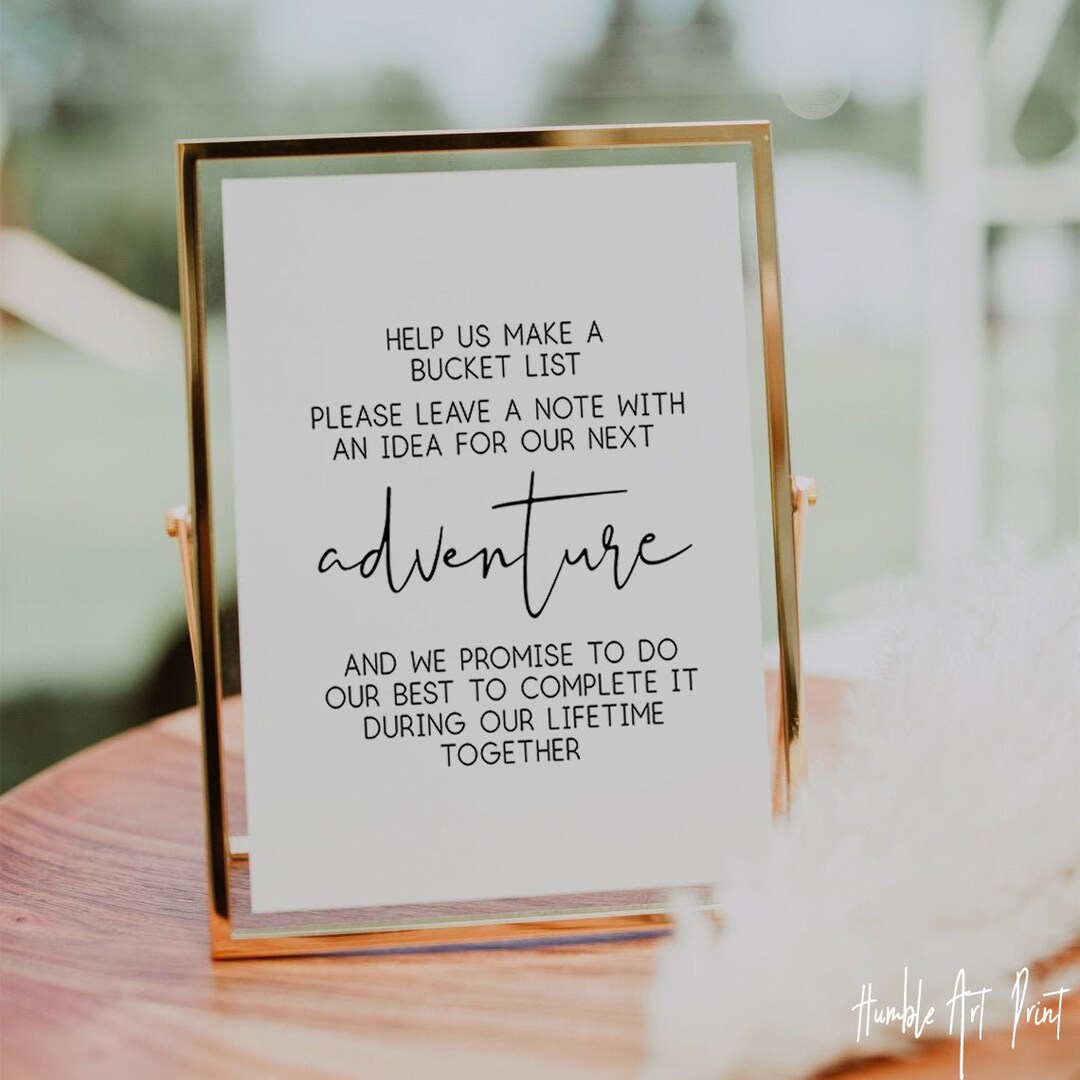 HELP US MAKE A
BUCKET LIST
PLEASE LEAVE A NOTE WITH
AN IDEA FOR OUR NEXT
adventure
AND WE PROMISE TO DO
OUR BEST TO COMPLETE IT
DURING OUR LIFETIME
TOGETHER
Humble Art Print